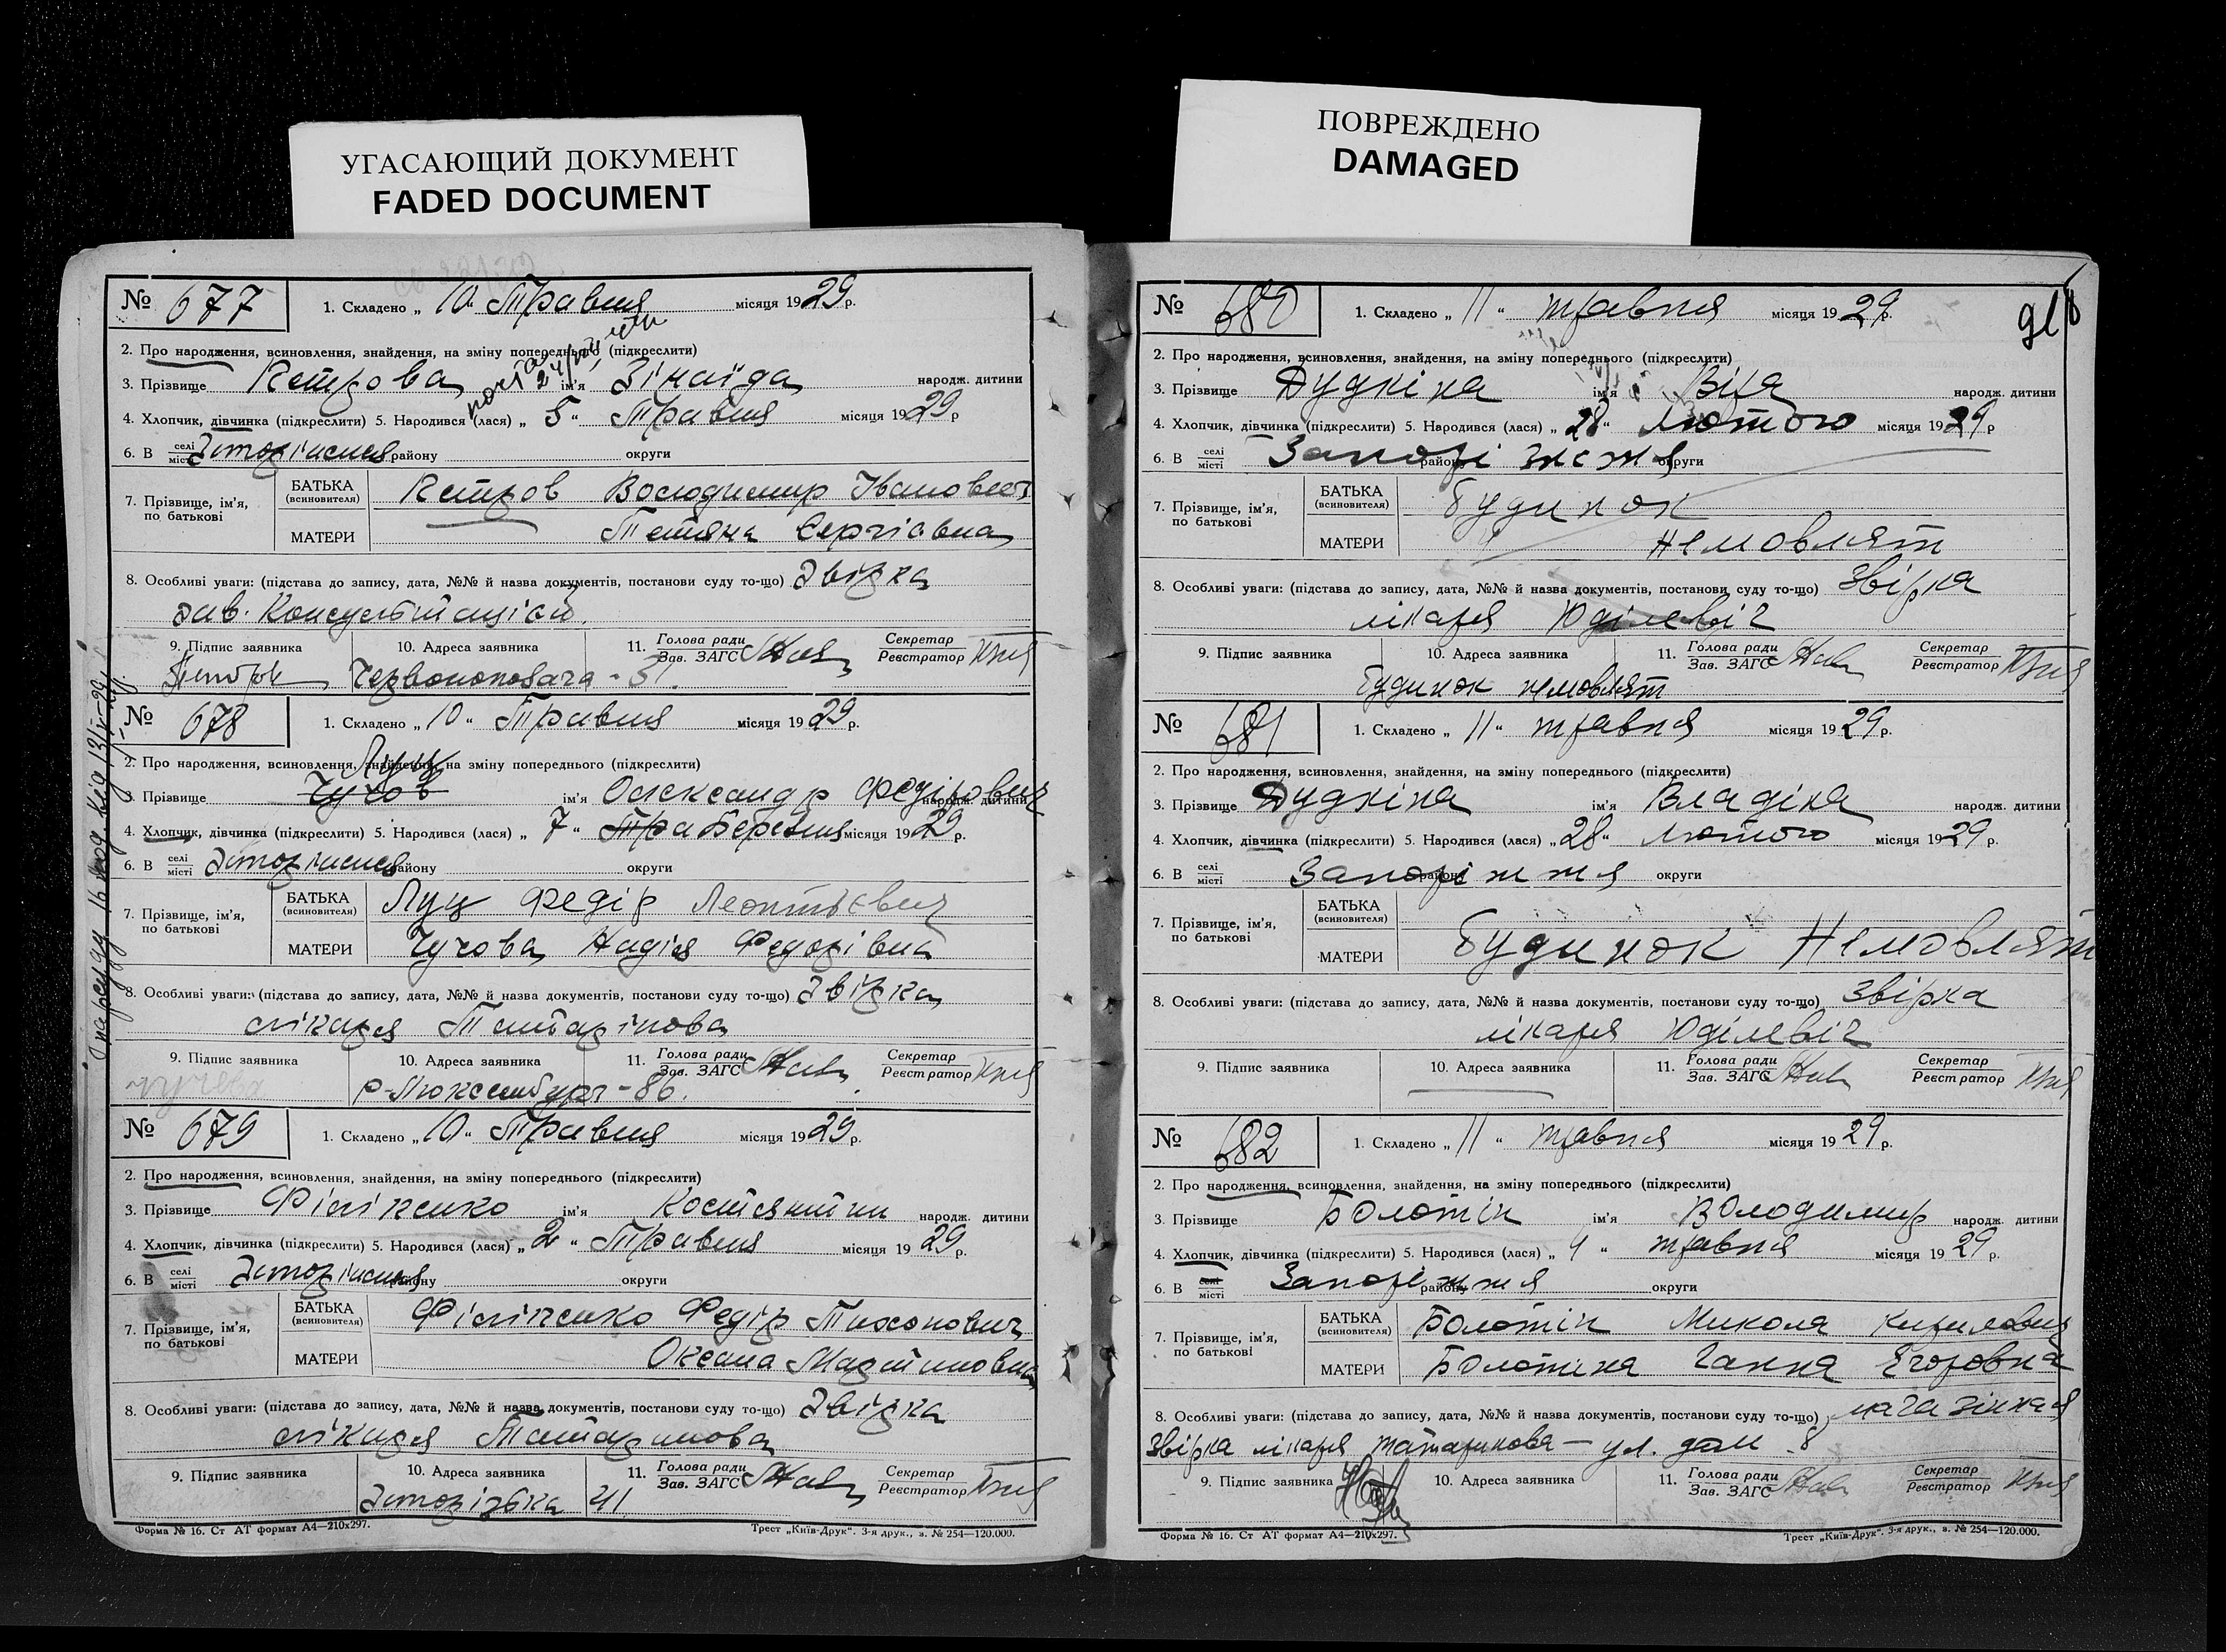 УГАСАЮЩИЙ ДОКУМЕНТ
FADED DOCUMENT
ПОВРЕЖДЕНО
DAMAGED
№ 677 1. Складено „ 10 “ Травня місяця 1929 р.
2. Про народження, всиновлення, знайдення, на зміну попереднього (підкреслити)
3. Прізвище Петрова ім'я Зінаїда народж. дитини
4. Хлопчик, дівчинка (підкреслити) 5. Народився (лася) „ 5 “ Травня місяця 1929 р
6. В селі місті району округи
7. Прізвище, ім'я, по батькові
БАТЬКА (всиновителя) Петров Володимир Іванович
МАТЕРИ Тетяна Сергієвна
8. Особливі уваги: (підстава до запису, дата, №№ й назва документів, постанови суду то-що) Звірка
зав. Консультацією
9. Підпис заявника 10. Адреса заявника 11. Голова ради Зав. ЗАГС Секретар Реєстратор
№ 678 1. Складено „ 10 “ Травня місяця 1929 р.
Луц
2. Про народження, всиновлення, знайдення, на зміну попереднього (підкреслити)
3. Прізвище ім'я Олександр Федірович народж. дитини
4. Хлопчик, дівчинка (підкреслити) 5. Народився (лася) „ 7 “ Тра Березня місяця 1929 р.
6. В селі місті району округи
7. Прізвище, ім'я, по батькові
БАТЬКА (всиновителя) Луц Федір Леонтьєвич
МАТЕРИ Чучова Надія Федорівна
8. Особливі уваги: (підстава до запису, дата, №№ й назва документів, постанови суду то-що) Звірка
лікаря Татарінова
9. Підпис заявника 10. Адреса заявника 11. Голова ради Зав. ЗАГС Секретар Реєстратор
Р-Люксембург - 86.
№ 679 1. Складено „ 10 “ Травня місяця 1929 р.
2. Про народження, всиновлення, знайдення, на зміну попереднього (підкреслити)
3. Прізвище Філіпенко ім'я Костянтин народж. дитини
4. Хлопчик, дівчинка (підкреслити) 5. Народився (лася) „ 2 “ Травня місяця 1929 р.
6. В селі місті району округи
7. Прізвище, ім'я, по батькові
БАТЬКА (всиновителя) Філіпенко Федір Тихонович
МАТЕРИ Оксана Мартиновна
8. Особливі уваги: (підстава до запису, дата, №№ й назва документів, постанови суду то-що) Звірка
лікаря Татаринова
9. Підпис заявника 10. Адреса заявника 11. Голова ради Зав. ЗАГС Секретар Реєстратор
41
Форма № 16. Ст АТ формат А4—210х297. Трест „Київ-Друк“. 3-я друк., з. № 254—120.000.
№ 680 1. Складено „ 11 “ травня місяця 1929 р.
2. Про народження, всиновлення, знайдення, на зміну попереднього (підкреслити)
3. Прізвище Дудкіна ім'я Віка народж. дитини
4. Хлопчик, дівчинка (підкреслити) 5. Народився (лася) „ 28 “ Лютого місяця 1929 р
6. В селі місті району округи
7. Прізвище, ім'я, по батькові
БАТЬКА (всиновителя) Будинок
МАТЕРИ Немовлят
8. Особливі уваги: (підстава до запису, дата, №№ й назва документів, постанови суду то-що) Звірка
лікаря Юділевіч
9. Підпис заявника 10. Адреса заявника 11. Голова ради Зав. ЗАГС Секретар Реєстратор
Будинок немовлят
№ 681 1. Складено „ 11 “ травня місяця 1929 р.
2. Про народження, всиновлення, знайдення, на зміну попереднього (підкреслити)
3. Прізвище Дудкіна ім'я Владіна народж. дитини
4. Хлопчик, дівчинка (підкреслити) 5. Народився (лася) „ 28 “ лютого місяця 1929 р.
6. В селі місті Запоріжжя району округи
7. Прізвище, ім'я, по батькові
БАТЬКА (всиновителя)
МАТЕРИ Будинок Немовлят
8. Особливі уваги: (підстава до запису, дата, №№ й назва документів, постанови суду то-що) Звірка
лікаря Юділевіч
9. Підпис заявника 10. Адреса заявника 11. Голова ради Зав. ЗАГС Секретар Реєстратор
№ 682 1. Складено „ 11 “ травня місяця 1929 р.
2. Про народження, всиновлення, знайдення, на зміну попереднього (підкреслити)
3. Прізвище Болотін ім'я Володимир народж. дитини
4. Хлопчик, дівчинка (підкреслити) 5. Народився (лася) „ 4 “ травня місяця 1929 р.
6. В селі місті Запоріжжя району округи
7. Прізвище, ім'я, по батькові
БАТЬКА (всиновителя) Болотін Микола Кирилович
МАТЕРИ Болотіна Ганна Єгоровна
8. Особливі уваги: (підстава до запису, дата, №№ й назва документів, постанови суду то-що)
Звірка лікаря Татаринова — ул. дом 8
9. Підпис заявника 10. Адреса заявника 11. Голова ради Зав. ЗАГС Секретар Реєстратор
Форма № 16. Ст АТ формат А4—210х297. Трест „Київ-Друк“. 3-я друк., з. № 254—120.000.